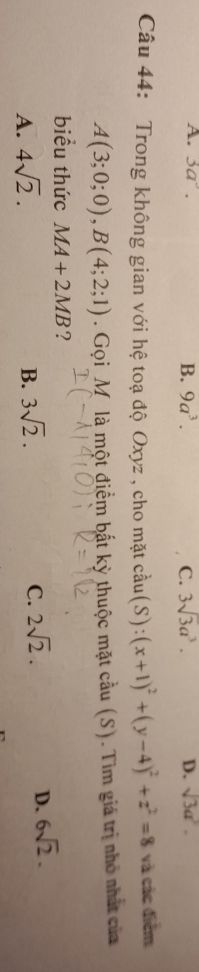 A. 3a³. B. 9a³. C. 3√3a³. D. √3a³.
Câu 44: Trong không gian với hệ toạ độ Oxyz, cho mặt cầu (S):(x+1)²+(y−4)²+z²=8 và các điểm
A(3;0;0), B(4;2;1). Gọi M là một điểm bất kỳ thuộc mặt cầu (S). Tìm giá trị nhỏ nhất của
biểu thức MA+2MB?
I(-1,4,0); R=
A. 4√2. B. 3√2. C. 2√2. D. 6√2.